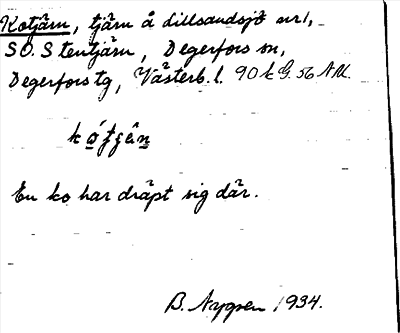 Kotjärn, tjärn å dillsandsjö nr 1,
S.O. Stentjärn, Degerfors sn,
Degerfors tg, Västerb. l. 90 k G. 56 A
En ko har dräpt sig där.
B. Nygren 1934.